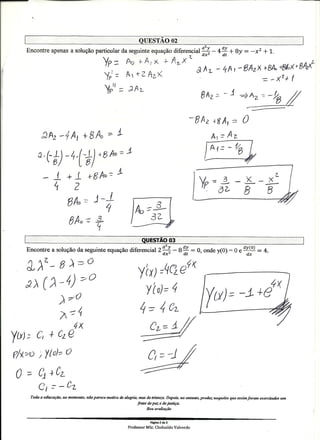 QUESTÃO 02
Encontre apenas a solução particular da seguinte equação diferencial d²y/dx² − 4 dy/dx + 8y = −x² + 1.
yp = A0 + A1x + A2x²
yp' = A1 + 2A2x
yp'' = 2A2
2A2 − 4A1 − 8A2x + 8A0 + 8A1x + 8A2x² = −x² + 1
8A2 = −1 ⇒ A2 = −1/8
−8A2 + 8A1 = 0
A1 = A2
A1 = −1/8
2A2 − 4A1 + 8A0 = 1
2·(−1/8) − 4·(−1/8) + 8A0 = 1
−1/4 + 1/2 + 8A0 = 1
8A0 = 1 − 1/4
8A0 = 3/4
A0 = 3/32
yp = 3/32 − x/8 − x²/8
QUESTÃO 03
Encontre a solução da seguinte equação diferencial 2 d²y/dx² − 8 dy/dx = 0, onde y(0) = 0 e dy(0)/dx = 4.
2λ² − 8λ = 0
2λ(λ − 4) = 0
λ = 0
λ = 4
y(x) = C1 + C2e^4x
p/x=0 ; y(0) = 0
0 = C1 + C2
C1 = −C2
y'(x) = 4C2e^4x
y'(0) = 4
4 = 4C2
C2 = 1
C1 = −1
y(x) = −1 + e^4x
Toda a educação, no momento, não parece motivo de alegria, mas de tristeza. Depois, no entanto, produz naqueles que assim foram exercitados um fruto de paz e de justiça.
Boa avaliação
Professor MSc. Cleduzildo Valverde